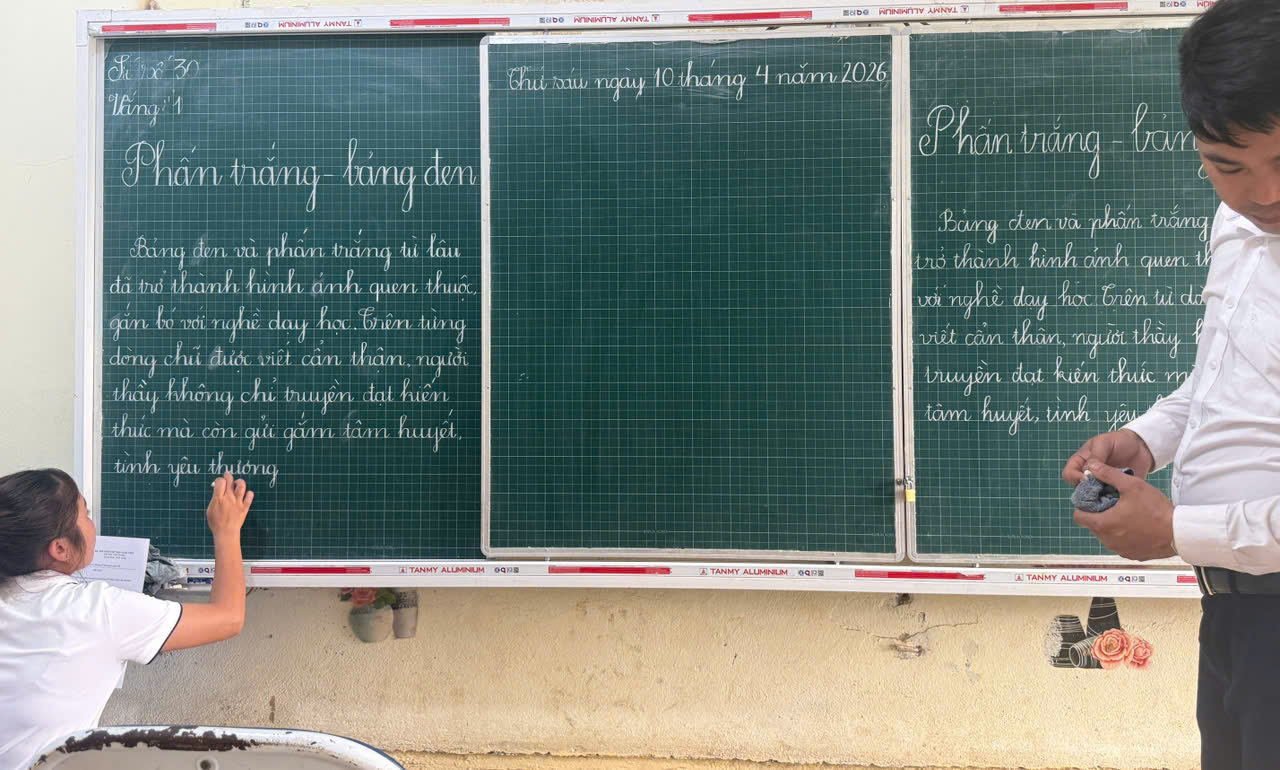 Sĩ số 30
Vắng: 1
Phấn trắng - bảng đen
Bảng đen và phấn trắng từ lâu
đã trở thành hình ảnh quen thuộc,
gắn bó với nghề dạy học. Trên từng
dòng chữ được viết cẩn thận, người
thầy không chỉ truyền đạt kiến
thức mà còn gửi gắm tâm huyết,
tình yêu thương
Thứ sáu ngày 10 tháng 4 năm 2026
Phấn trắng -
Bảng đen và phấn trắng
trở thành hình ảnh quen
với nghề dạy học. Trên
viết cẩn thận, người thầy
truyền đạt kiến thức
tâm huyết, tình yêu
TANMY ALUMINIUM
TANMY ALUMINIUM
TANMY ALUMINIUM
TANMY ALUMINIUM
TANMY ALUMINIUM
TANMY ALUMINIUM